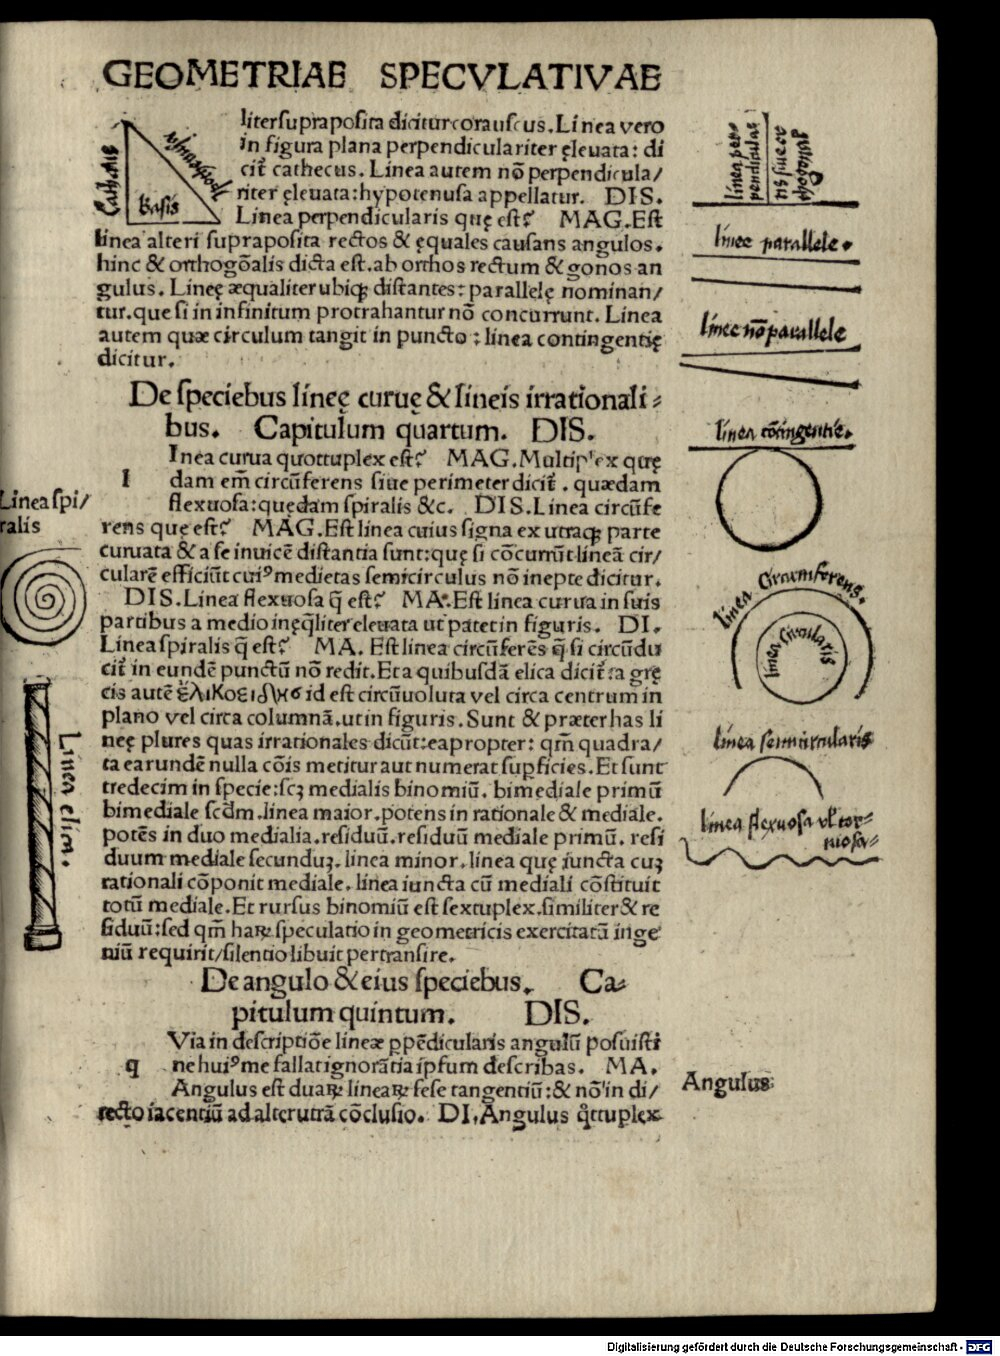 GEOMETRIAE SPECVLATIVAE
liter supraposita dicitur corauscus. Linea vero
in figura plana perpendiculariter ęleuata: di
cit̃ cathecus. Linea autem nõ perpendicula/
riter ęleuata: hypotenusa appellatur. DIS.
Linea perpendicularis quę est? MAG. Est
linea alteri supraposita rectos & ęquales causans angulos.
hinc & orthogõalis dicta est. ab orthos rectum & gonos an
gulus. Lineę æqualiter ubiqꝫ distantes: parallelę nominan/
tur. que si in infinitum protrahantur nõ concurrunt. Linea
autem quæ circulum tangit in puncto: linea contingentię
dicitur.
Cathetus
hypotenusa
Basis
linea per
pendicularis
linee parallele.
linee nõ parallele
linea cõtingentie.
De speciebus lineę curuę & lineis irrationali⸗
bus. Capitulum quartum. DIS.
l
Inea curua quottuplex est? MAG. Multiplex quę
dam em̃ circũferens siue perimeter dicit̃. quædam
flexuosa: quędam spiralis &c. DIS. Linea circũfe
rens quę est? MAG. Est linea cuius signa ex utraqꝫ parte
curuata & a se inuicẽ distantia sunt: quę si cõcurrũt lineã cir/
cularẽ efficiũt cuiꝰ medietas semicirculus nõ inepte dicitur.
DIS. Linea flexuosa q̃ est? MA. Est linea curua in suis
partibus a medio inęq̃liter eleuata ut patet in figuris. DI.
Linea spiralis q̃ est? MA. Est linea circũferẽs q̃ si circũdu
cit̃ in eundẽ punctũ nõ redit. Et a quibusdã elica dicit̃ a grę
cis autẽ ἑλικοειδης id est circũuoluta vel circa centrum in
plano vel circa columnã. ut in figuris. Sunt & præter has li
neę plures quas irrationales dicũt: eapropter: qm̃ quadra/
ta earundẽ nulla cõis metitur aut numerat supficies. Et sunt
tredecim in specie: scꝫ medialis binomiũ. bimediale primũ
bimediale scdm̃. linea maior. potens in rationale & mediale.
potẽs in duo medialia. residuũ. residuũ mediale primũ. resi
duum mediale secunduꝫ. linea minor. linea quę iuncta cuꝫ
rationali cõponit mediale. linea iuncta cũ mediali cõstituit
totũ mediale. Et rursus binomiũ est sextuplex. similiter & re
siduũ: sed qm̃ haꝝ speculatio in geometricis exercitatã inge
niũ requirit/ silentio libuit pertransire.
Linea spi/
ralis
Linea elica.
linea Circumferens.
linea circularis
linea semicircularis
linea flexuosa vl̃ tor⸗
tuosa⸗
De angulo & eius speciebus. Ca⸗
pitulum quintum. DIS.
q
Via in descriptiõe lineæ ꝑpẽdicularis angulũ posuisti
ne huiꝰ me fallat ignorãtia ipsum describas. MA.
Angulus est duaꝝ lineaꝝ sese tangentiũ: & nõ in di/
recto iacentiũ ad alterutrã cõclusio. DI. Angulus q̃tuplex
Angulus
Digitalisierung gefördert durch die Deutsche Forschungsgemeinschaft - DFG